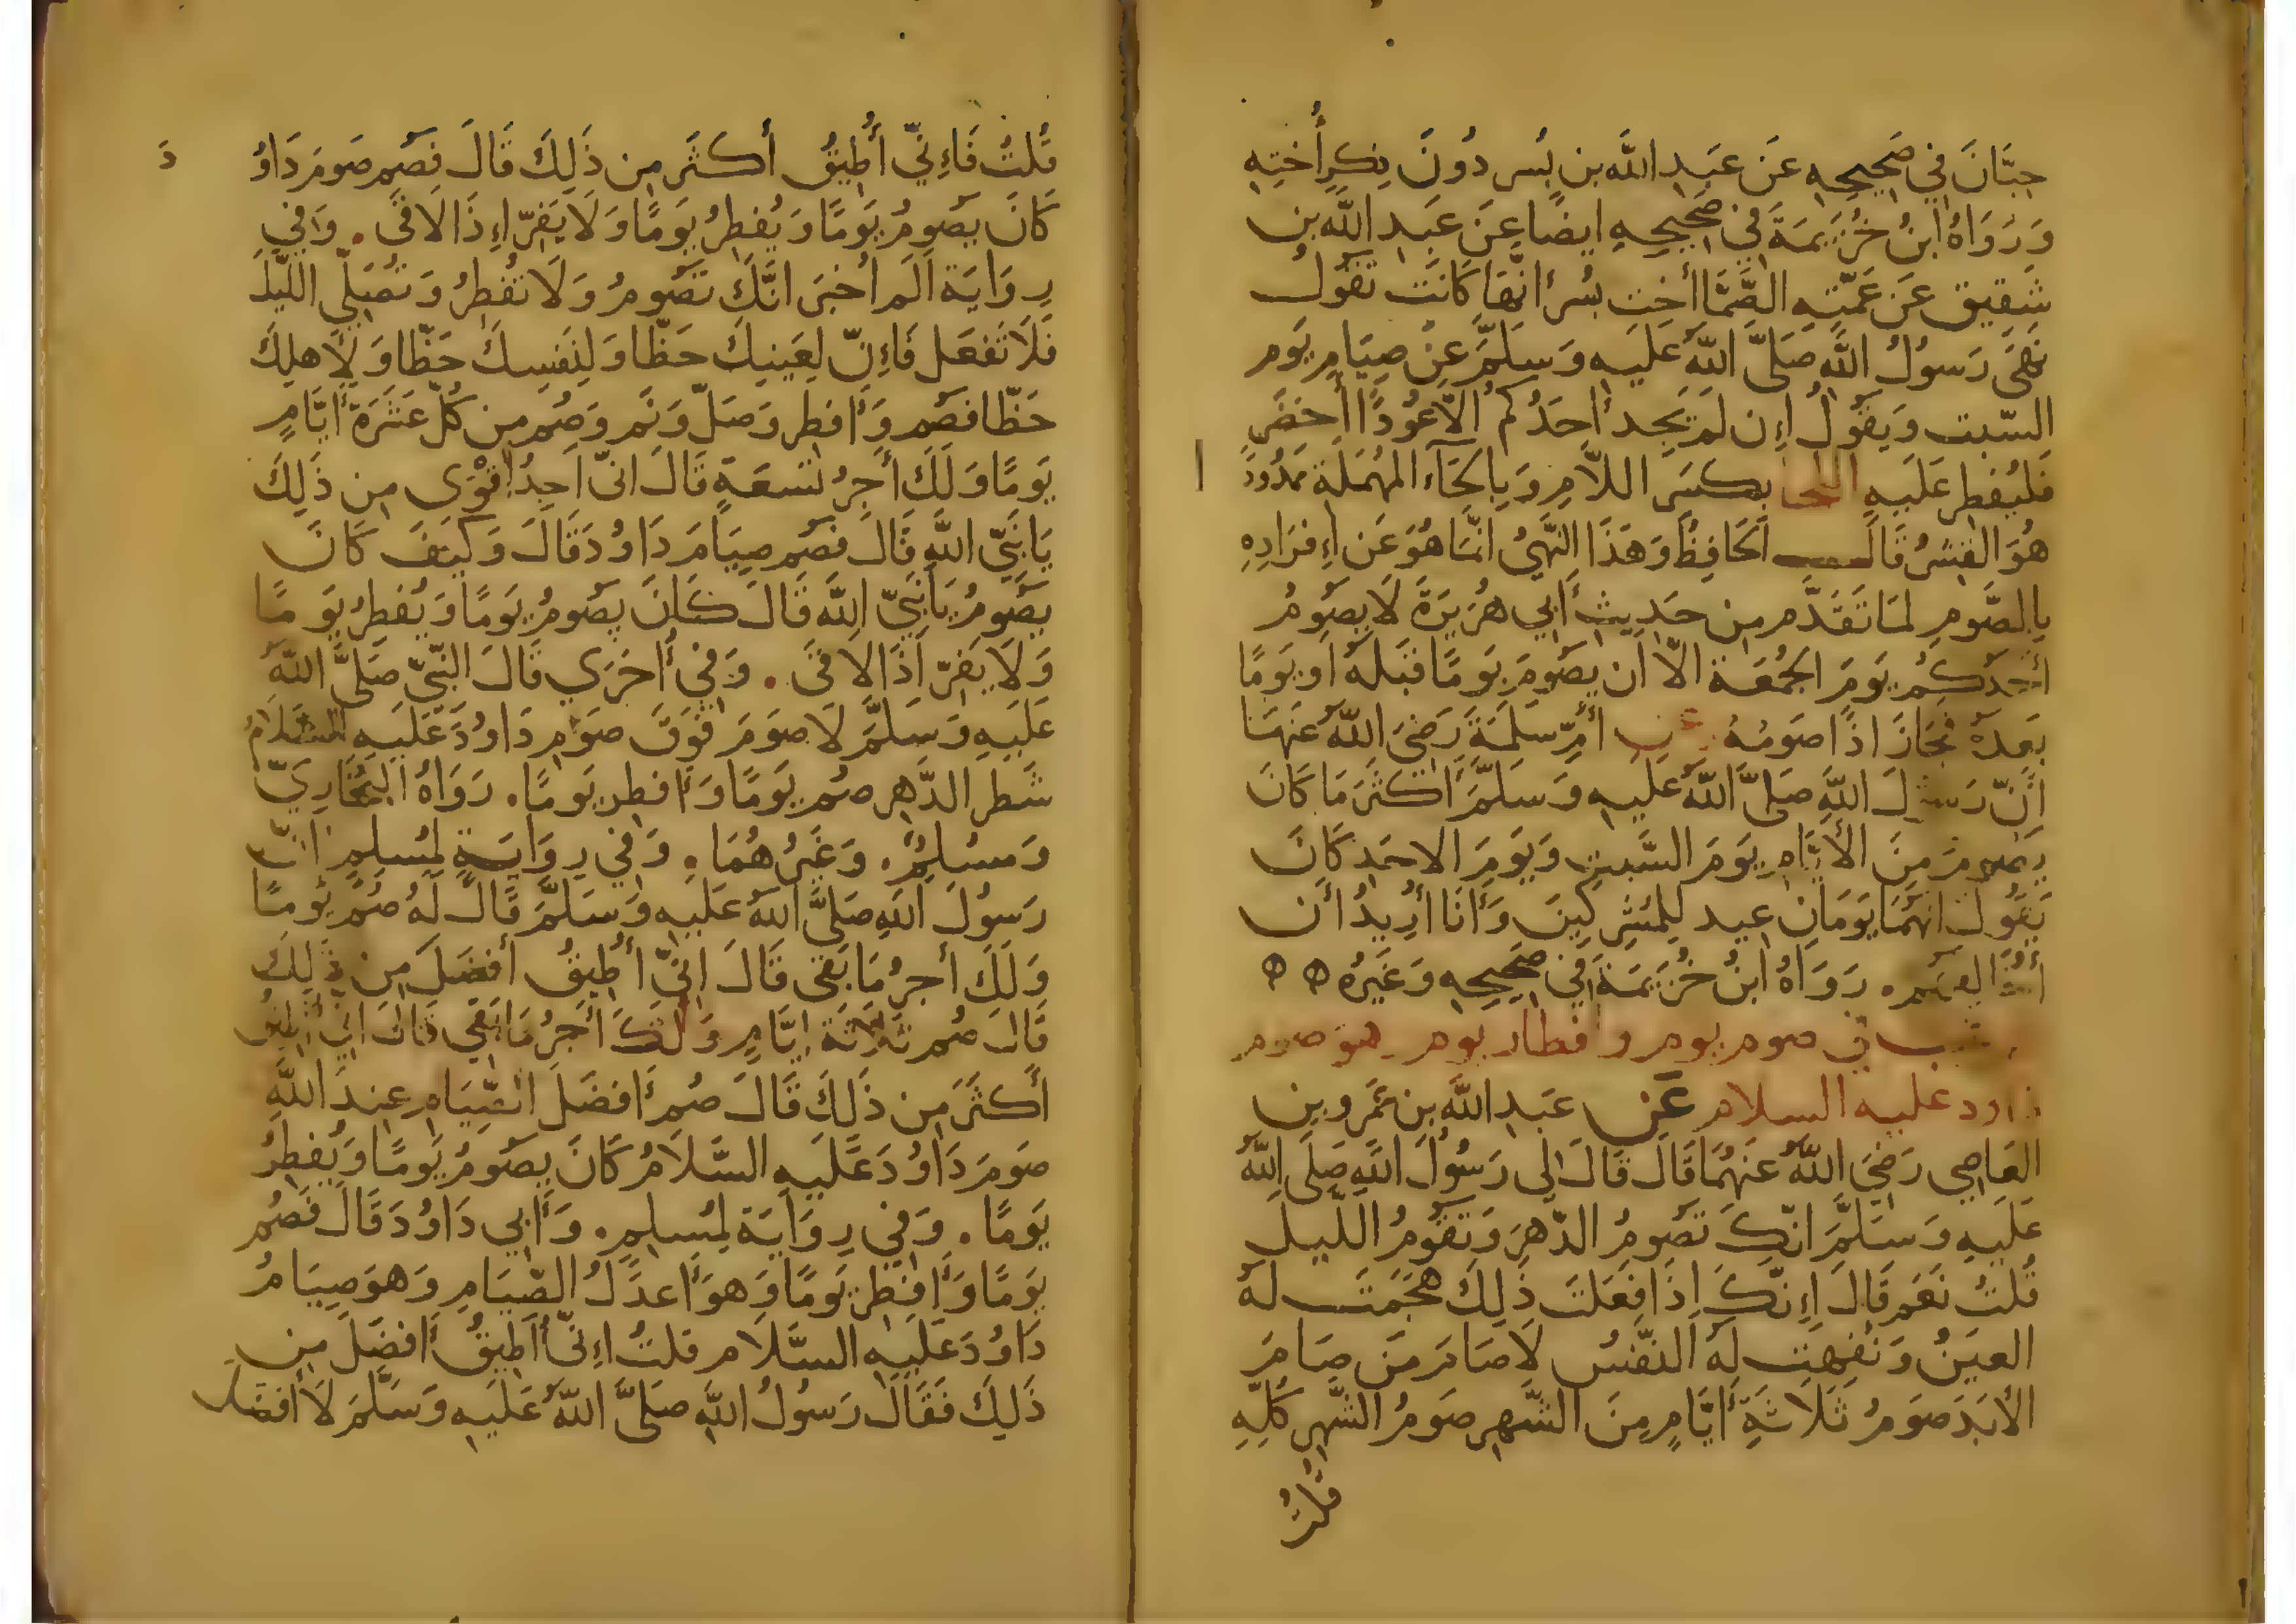 حِبَّانَ فِي صَحِيحِهِ عَن عَبدِ اللَّه بن بُسر دُونَ ذِكرِ أُختِهِ
وَرَوَاهُ ابنُ خُزَيمَةَ فِي صَحِيحِهِ ايضًا عَن عَبدِ اللَّه بن
شَقِيق عَن عَمَّتِهِ الصَّمَّا أُختِ بُسر انَّهَا كَانَت تَقُولُ
نَهَى رَسُولُ اللَّه صَلَّى اللَّهُ عَلَيهِ وَسَلَّمَ عَن صِيَامِ يَوم
السّبت وَيَقُولُ إِن لَم يَجِد أَحَدُكُم الَّا عُودًا أَخضَر
فَليُفطِر عَلَيهِ اللحا بكَسرِ اللَّامِ وَبِالحَآءِ المُهمَلَة مَمدُودً
هُوَ القِشرُ قَالَ الحَافِظُ وَهَذَا النَّهيُ انَّمَا هُوَ عَن إِفرَادِهِ
بِالصَّومِ لمَا تَقَدَّم مِن حَدِيثِ أَبِي هُرَيرَةَ لَا يَصُومُ
أَحَدُكُم يَومَ الجُمُعَة الَّا ان يَصُومَ يَومًا قَبلَهُ او يَومًا
بَعدَهُ فَجَازَ اذًا صَومُهُ عن أُمِّ سَلَمَةَ رَضِيَ اللَّهُ عَنهَا
أَنّ رَسُولَ اللَّهِ صَلَّى اللَّهُ عَلَيهِ وَسَلَّمَ أَكثَرَ مَا كَانَ
يَصُومُ مِنَ الأَيَّامِ يَومَ السَّبتِ وَيَومَ الاحَدِ كَانَ
يَقُولُ انَّهُمَا يَومَانِ عِيد لِلمُشرِكِينَ وَأَنَا أُرِيدُ أَن
أُخَالِفَهُم. رَوَاهُ ابنُ خُزَيمَةَ فِي صَحِيحِهِ وَغَيرُهُ ه ه
في صوم يوم وافطار يوم وهو صوم
داود عليه السلام عَن عَبدِ اللَّه بن عَمرو بن
العَاصِي رَضِيَ اللَّهُ عَنهُمَا قَالَ قَالَ لِي رَسُولُ اللَّهِ صَلَّى اللَّهُ
عَلَيهِ وَسَلَّمَ انّكَ تَصُومُ الدّهرَ وَتَقُومُ اللَّيلَ
قُلتُ نَعَم قَالَ إِنّكَ إِذَا فَعَلتَ ذَلِكَ هَجَمَت لَهُ
العَينُ وَنَفِهَت لَهُ النّفسُ لَا صَامَ مَن صَامَ
الأَبَدَ صَومُ ثَلَاثَةِ أَيَّامٍ مِنَ الشَّهرِ صَومُ الشَّهرِ كُلِّهِ
قُلتُ
قُلتُ فَإِنِّي أُطِيقُ أَكثَر مِن ذَلِكَ قَالَ فَصُم صَومَ دَاوُ دَ
كَانَ يَصُومُ يَومًا وَيُفطِرُ يَومًا وَلَا يَفِرّ إِذَا لَاقَى. وَفِي
رِوَايَة أَلَم أُخبَر انَّكَ تَصُومُ وَلَا تُفطِرُ وَتُصَلِّي اللَّيلَ
فَلَا تَفعَل فَإِنّ لِعَينِكَ حَظّا وَلِنَفسِكَ حَظّا وَلِأَهلِكَ
حَظّا فصُم وَأَفطِر وَصَلّ وَنَم وَصُم مِن كُلّ عَشَرَة أَيَّامٍ
يَومًا وَلَكَ أَجرُ تسعَةٍ قَالَ انّي أَجِدُ اقوَى مِن ذَلِكَ
يَا نَبِيّ اللَّهِ قَالَ فَصُم صِيَامَ دَاوُدَ قَالَ وَكَيفَ كَانَ
يَصُومُ يَا نَبِيّ اللَّه قَالَ كَانَ يَصُومُ يَومًا وَيُفطِرُ يَومًا
وَلَا يَفِرّ اذَا لَاقَى. وَفِي أُخرَي قَالَ النَّبِيّ صَلَّى اللَّهُ
عَلَيهِ وَسَلَّمَ لَا صَومَ فَوقَ صَومِ دَاوُدَ عَلَيهِ السَّلَامُ
شَطر الدَّهرِ صُم يَومًا وَأَفطِر يَومًا. رَوَاهُ البُخَارِيّ
وَمسُلِمٌ. وَغَيرُهُمَا. وَفِي رِوَايَةٍ لِمُسلِمٍ انّ
رَسُولَ اللَّهِ صَلَّى اللَّهُ عَلَيهِ وَسَلَّمَ قَالَ لَهُ صُم يَومًا
وَلَكَ أَجرُ مَا بَقِيَ قَالَ انِّي أُطِيقُ أَفضَلَ مِن ذَلِكَ
قَالَ صُم ثَلَاثَةَ ايَّامٍ وَلَكَ أَجرُ مَا بَقِي قَالَ انِّي أُطِيقُ
أَكثَرَ مِن ذَلِكَ قَالَ صُم أَفضَلَ الصِّيَامِ عِندَ اللَّهِ
صَومَ دَاوُدَ عَلَيهِ السَّلَامُ كَانَ يَصُومُ يَومًا وَيُفطِرُ
يَومًا. وَفِي رِوَايَة لِمُسلِمٍ. وَأَبِي دَاوُدَ قَالَ فَصُم
يَومًا وَأَفطِر يَومًا وَهوَ أَعدَلُ الصِّيَامِ وَهوَ صِيَامُ
دَاوُدَ عَلَيهِ السَّلَام قلتُ إِنِّي أُطِيقُ أَفضَلَ مِن
ذَلِكَ فَقَالَ رَسُولُ اللَّهِ صَلَّى اللَّهُ عَلَيهِ وَسَلَّمَ لَا أَفضَلَ